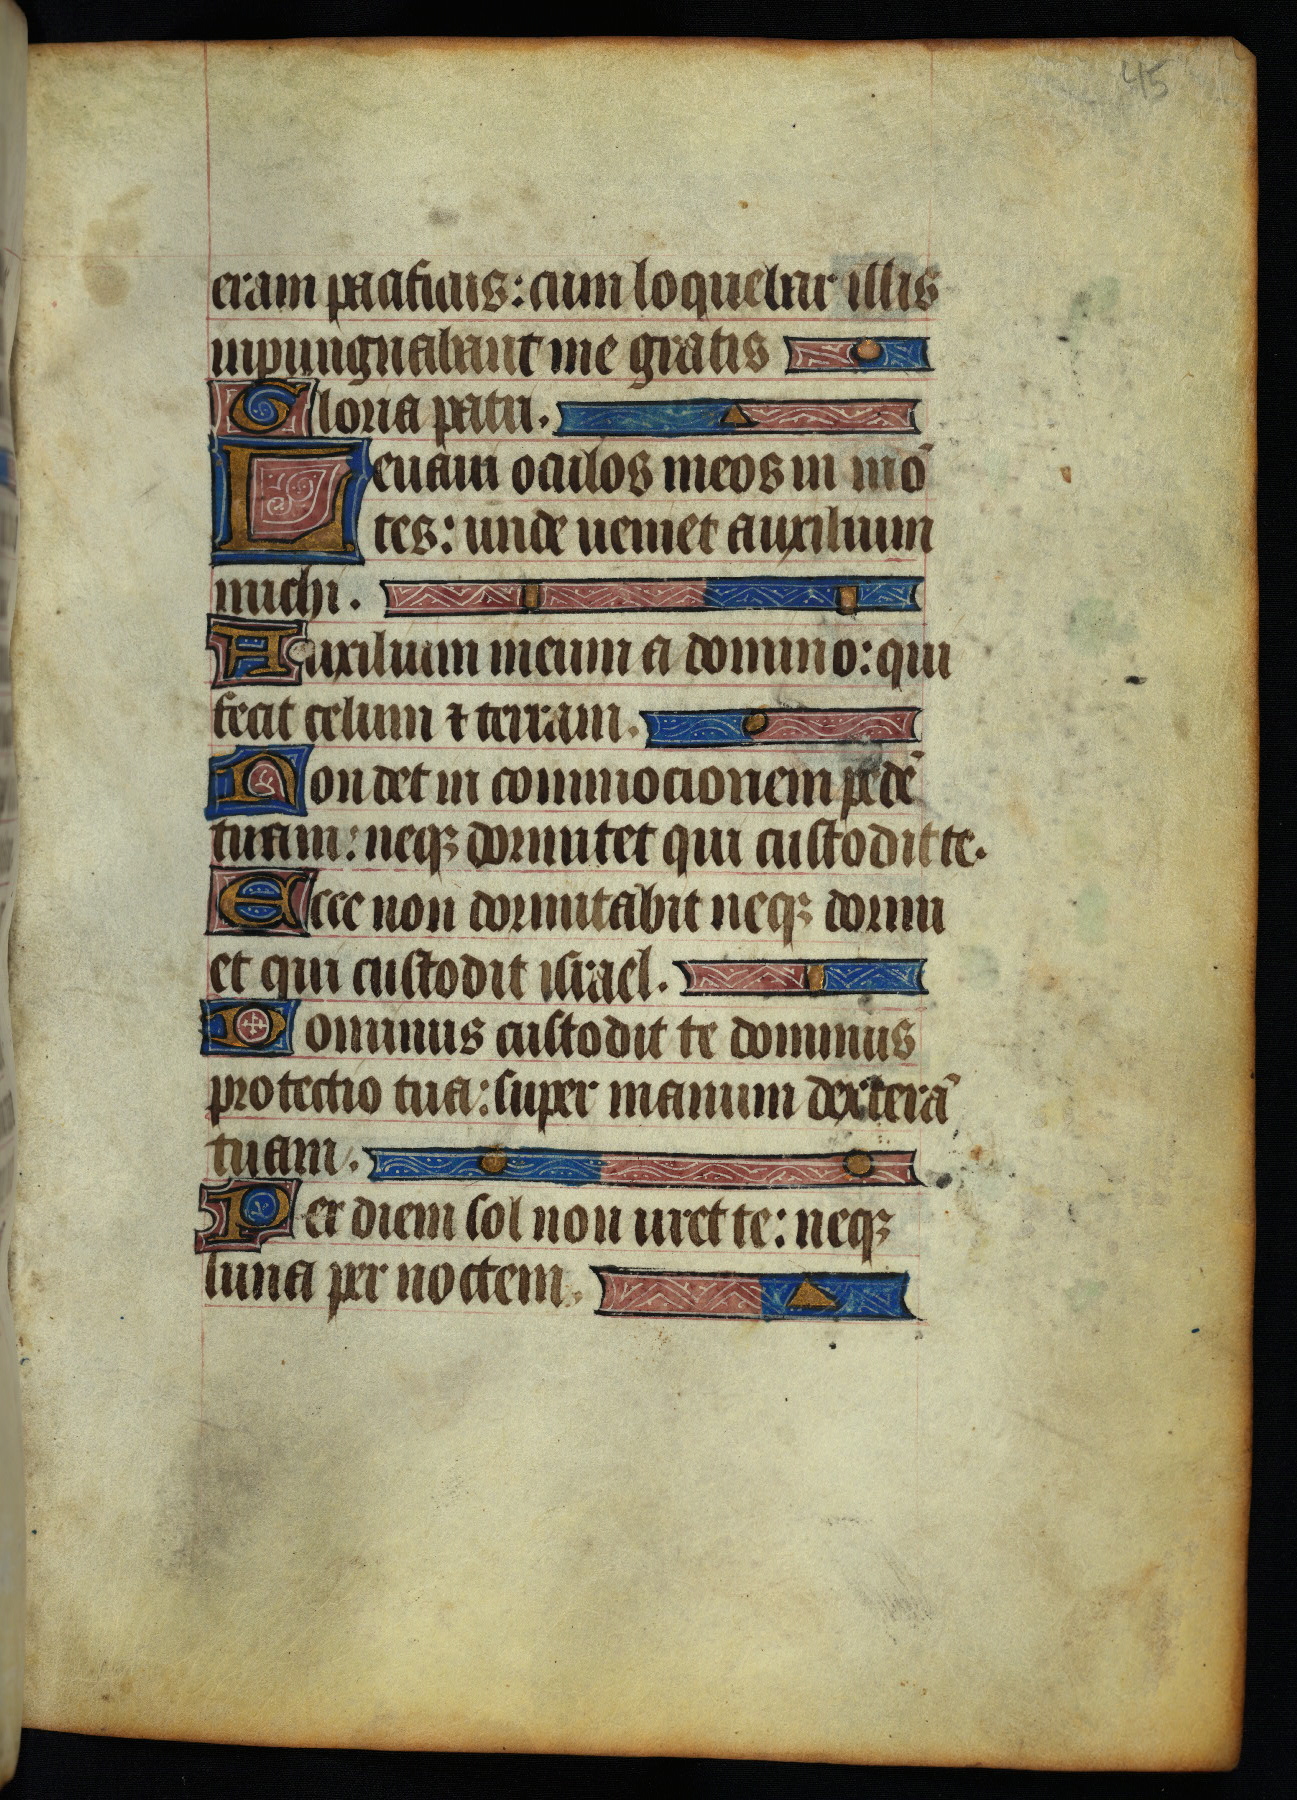 45
eram pacificis: cum loquebar illis
inpungnabant me gratis
Gloria patri.
Leuaui oculos meos in mõ
tes: unde ueniet auxilium
michi.
Auxilium meum a domino: qui
fecit celum ⁊ terram.
Non det in commocionem pedẽ
tuam: neqꝫ dormitet qui custodit te.
Ecce non dormitabit neqꝫ dormi
et qui custodit israel.
Dominus custodit te dominus
protectio tua: super manum dexterã
tuam.
Per diem sol non uret te: neqꝫ
luna per noctem.